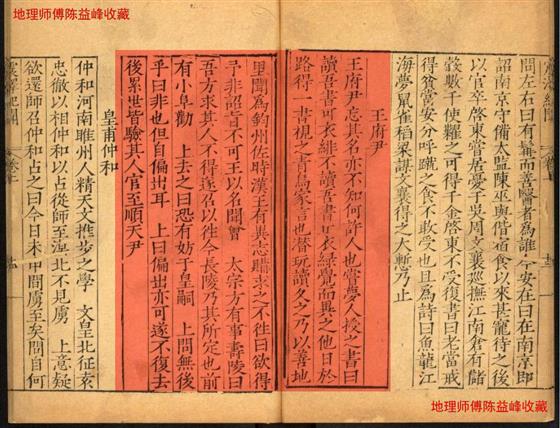 地理师傅陈益峰收藏
問左右曰有鬍而善醫者為誰今安在曰在南京即
詔南京守備太監陳巫輿偕宿食以來甚寵待之後
以官卒啓東嘗居憂于吳周文襄巡撫江南倉有儲
穀數千使糶之可得千金啓東不受復書曰老當戒
得貧當安分呼蹴之食不敢受也且為詩曰魚龍江
海夢鼠雀稻粱謀文襄得之大慙乃止
王府尹
王府尹忘其名亦不知何許人也嘗夢人授之書曰
讀吾書可衣緋不讀吾書止衣綠覺而異之他日於
路得一書視之青烏家言也潛玩讀久之乃以善地
里聞為鈞州佐時漢王有異志求之不往曰欲得
予非詔旨不可王以名聞會 太宗方有事壽陵曰
吾方求其人不得遂召以往今長陵乃其所定也前
有小阜勸 上去之曰恐有妨于皇嗣 上問無後
乎曰非也但自偏出耳 上曰偏出亦可遂不復去
後累世皆驗其人官至順天尹
皇甫仲和
仲和河南雎州人精天文推步之學 文皇北征袁
忠徹以相仲和以占從師至漠北不見虜 上意疑
欲還師召仲和占之曰今日未申間虜至矣問自何
震澤紀聞
地理师傅陈益峰收藏